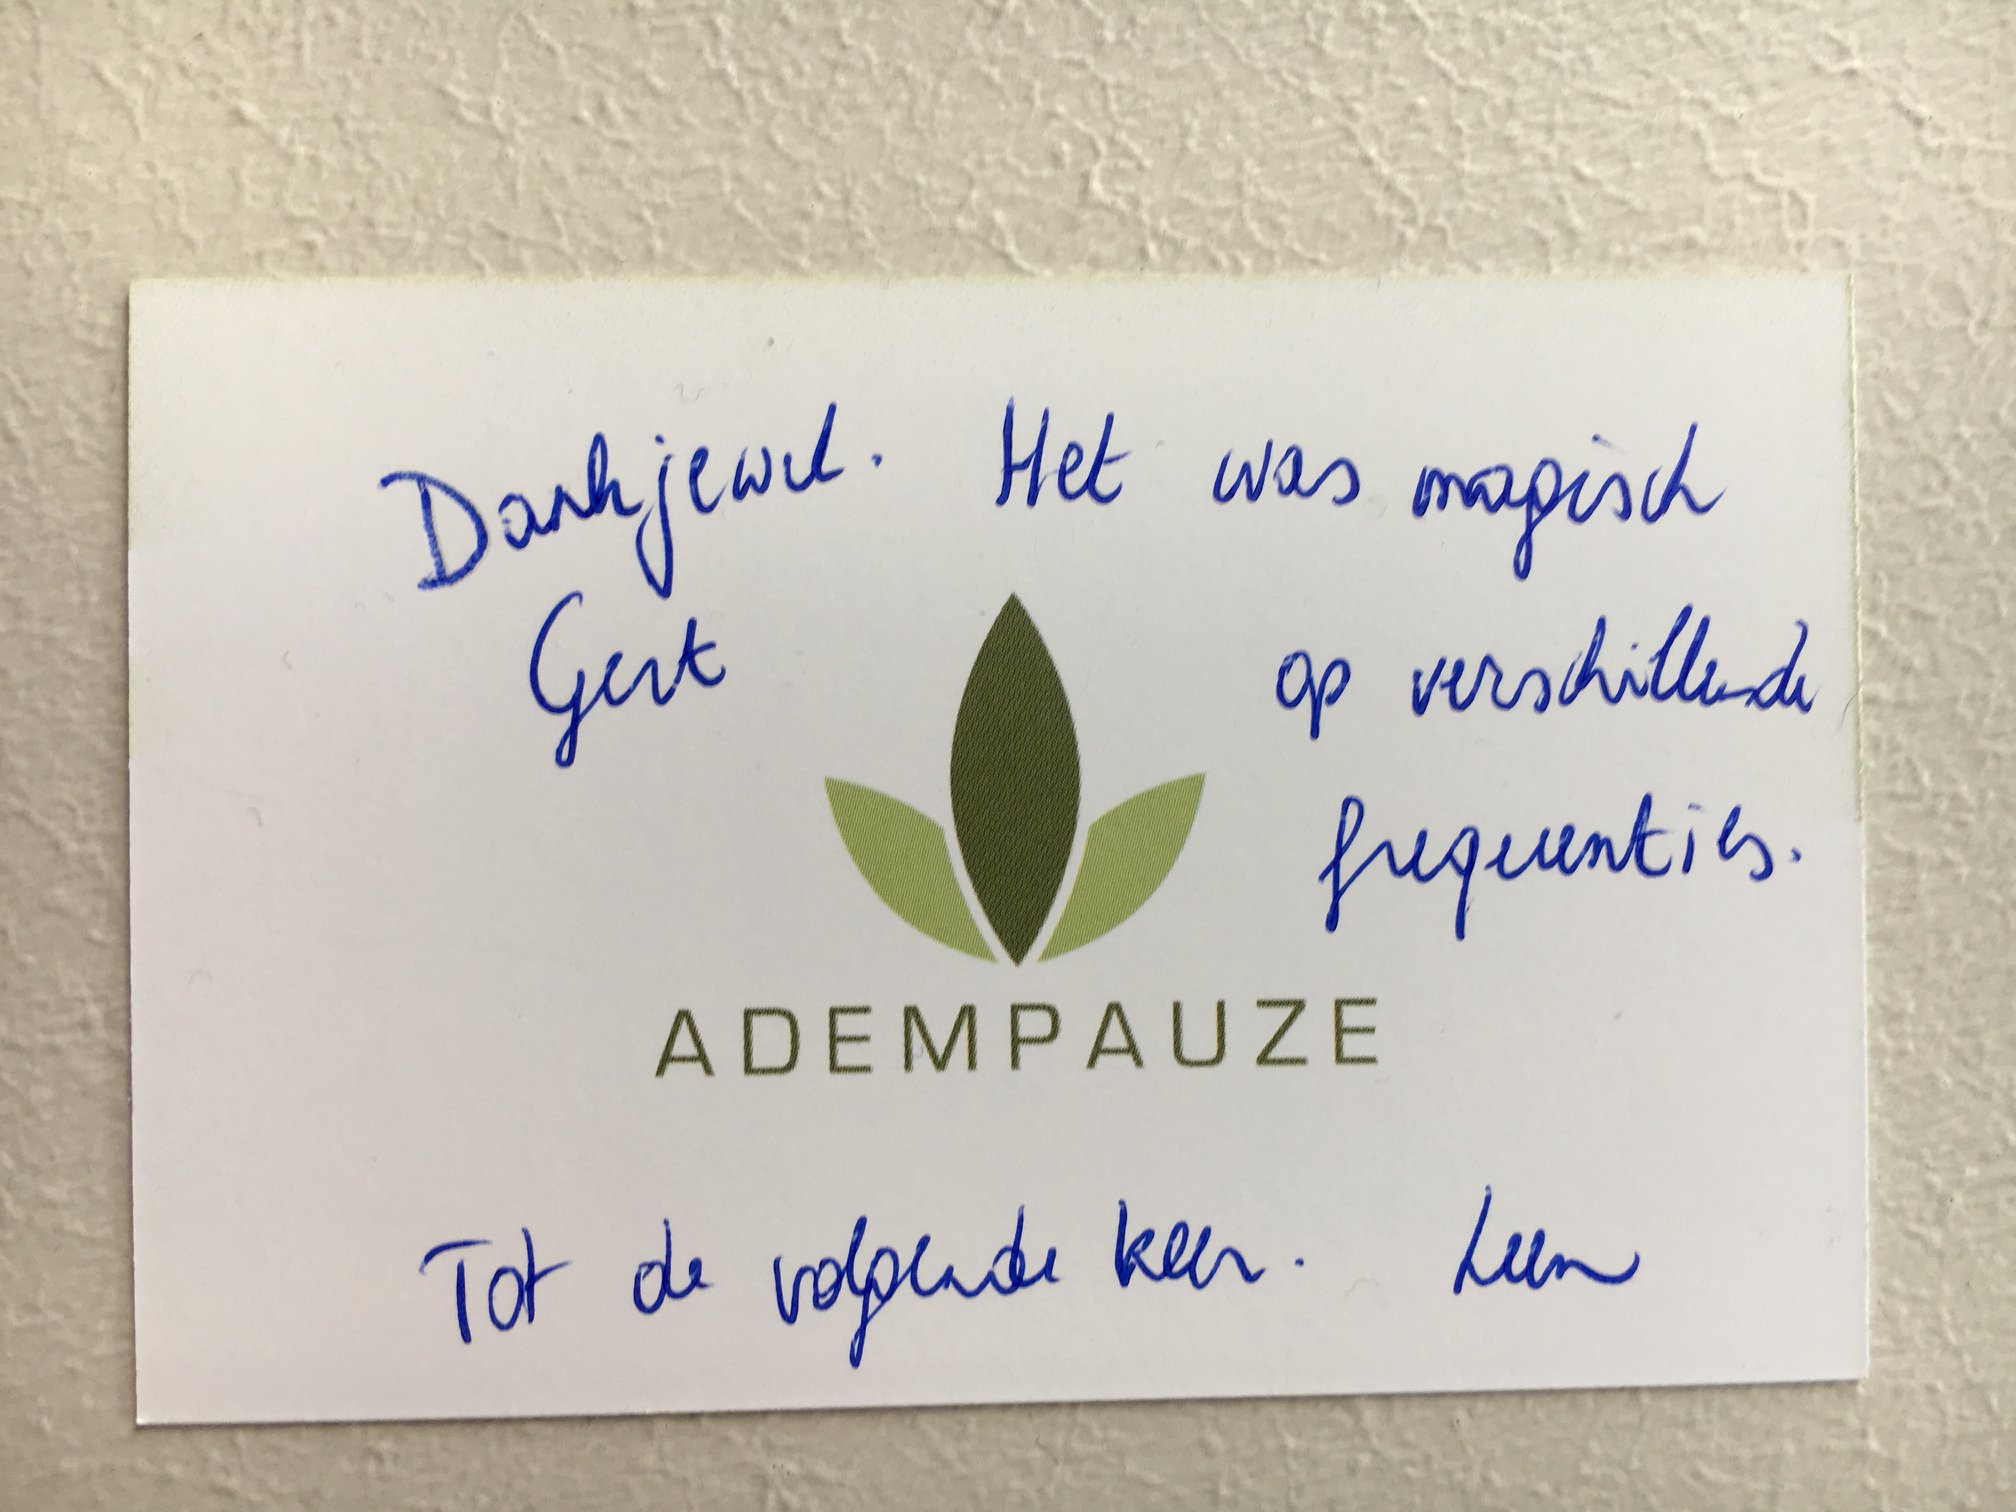 Dankjewel. Het was magisch
Gert op verschillende
frequenties.
ADEMPAUZE
Tot de volgende keer. Leen